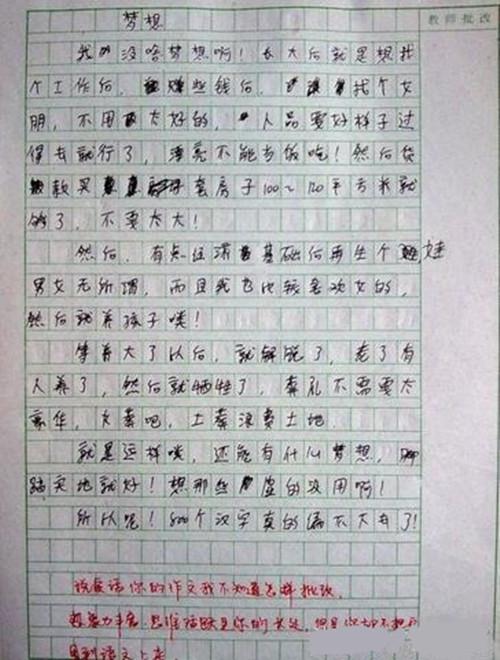 教师批改
梦想
我没啥梦想啊！长大后就是想找
个工作后，赚些钱后，找个女
朋，不用太好的，人品要好样子过
得去就行了，漂亮不能当饭吃！然后贷
款买套房子100~120平方米就
够了，不要太大！
然后，有点经济基础后再生个娃
男女无所谓，而且我也比较喜欢女的，
然后就养孩子喽！
等养大了以后，就解脱了，老了有
人养了，然后就牺牲了，葬礼不需要太
豪华，火葬吧，土葬浪费土地
就是这样喽，还能有什么梦想，脚
踏实地就好！想那些虚的没用啊！
所以呢！800个汉字真的编不下去了！
说实话你的作文我不知道怎样批改，
想象力丰富，思维活跃是你的长处，但是